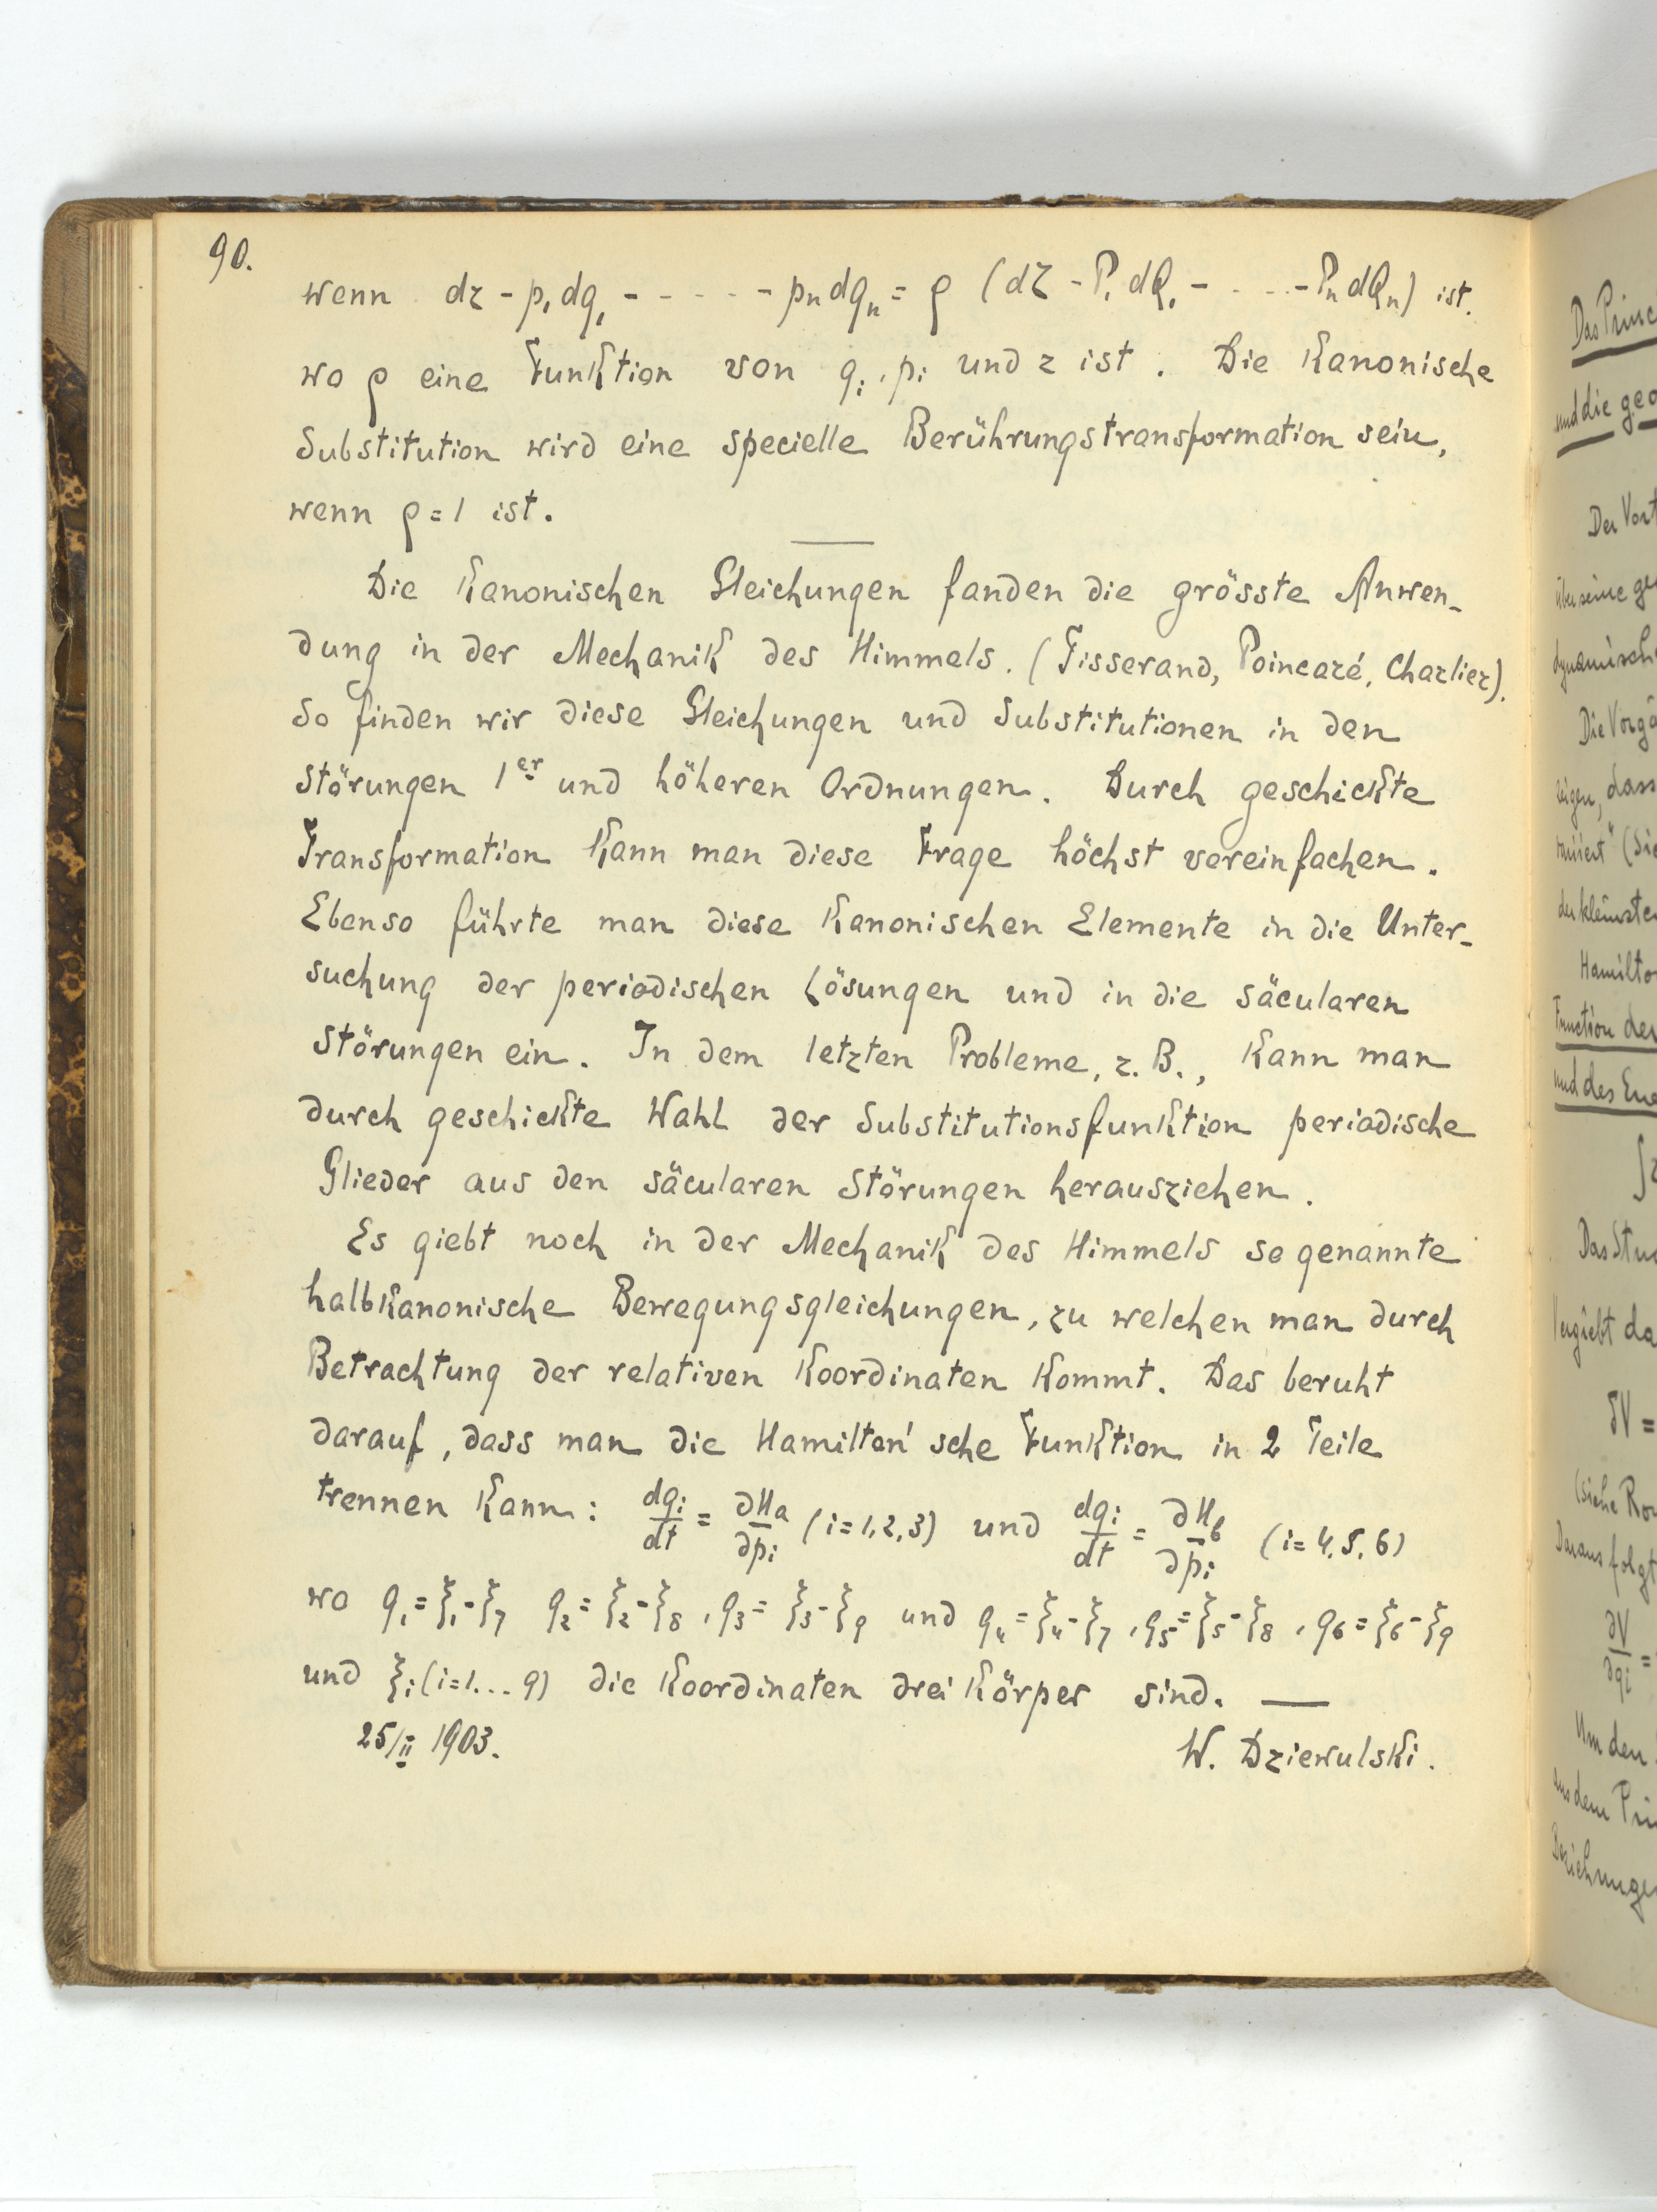 90.
wenn dz - p₁dq₁ - - - - - - pₙdqₙ = ρ (dZ - P₁dQ₁ - . . . - PₙdQₙ) ist.
wo ρ eine Funktion von qᵢ, pᵢ und z ist. Die Kanonische
Substitution wird eine specielle Berührungstransformation sein,
wenn ρ = 1 ist.
Die Kanonischen Gleichungen fanden die grösste Anwen-
dung in der Mechanik des Himmels. (Tisserand, Poincaré, Charlier).
So finden wir diese Gleichungen und Substitutionen in den
Störungen 1er und höheren Ordnungen. Durch geschickte
Transformation Kann man diese Frage höchst vereinfachen.
Ebenso führte man diese Kanonischen Elemente in die Unter-
suchung der periodischen Lösungen und in die säcularen
Störungen ein. In dem letzten Probleme, z. B., Kann man
durch geschickte Wahl der Substitutionsfunktion periodische
Glieder aus den säcularen Störungen herausziehen.
Es giebt noch in der Mechanik des Himmels so genannte
halbkanonische Bewegungsgleichungen, zu welchen man durch
Betrachtung der relativen Koordinaten Kommt. Das beruht
darauf, dass man die Hamilton'sche Funktion in 2 Teile
trennen Kann: dqᵢ/dt = ∂Hₐ/∂pᵢ (i=1,2,3) und dqᵢ/dt = ∂H_b/∂pᵢ (i=4,5,6)
wo q₁=ξ₁-ξ₇ q₂=ξ₂-ξ₈, q₃=ξ₃-ξ₉ und q₄=ξ₄-ξ₇, q₅=ξ₅-ξ₈, q₆=ξ₆-ξ₉
und ξᵢ(i=1...9) die Koordinaten drei Körper sind. —
25/II 1903.
W. Dziewulski.
Das Princ
und die geo
Der Vort
über seine ge
dynamisch
Die Vorgä
zeigen, dass
(Si
der kleinste
Hamilto
Function der
und des Ene
∫2
Das Stu
Vergiebt da
δV =
(siehe Rou
Daraus folgt
∂V/∂qi =
Um den
aus dem Pri
Beziehunge